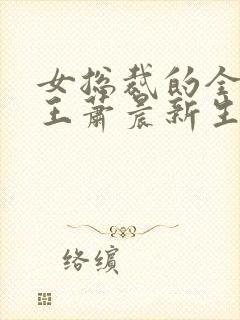 女总裁的全
王萧晨新生
络缤